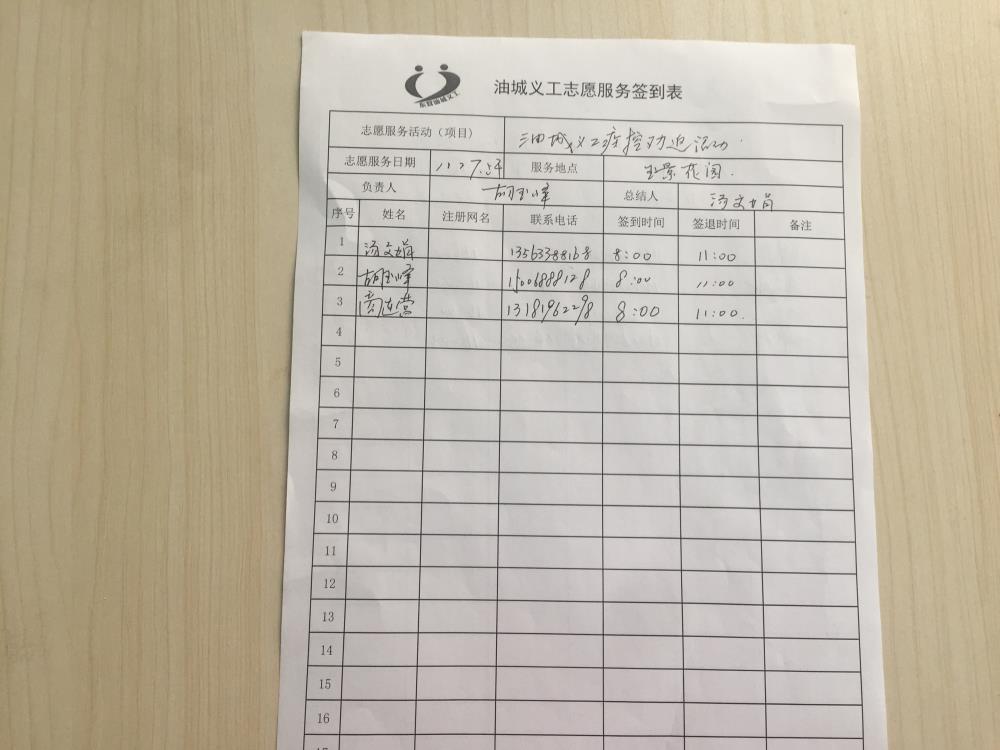 东营油城义工
油城义工志愿服务签到表
志愿服务活动（项目） 油城义工疫控劝返活动
志愿服务日期 服务地点 玉景花园.
负责人 胡玉峰 总结人 汤文娟
序号 姓名 注册网名 联系电话 签到时间 签退时间 备注
1 汤文娟 13563388168 8:00 11:00
2 胡玉峰 15006888128 8:00 11:00
3 周连营 13181962298 8:00 11:00.
4
5
6
7
8
9
10
11
12
13
14
15
16